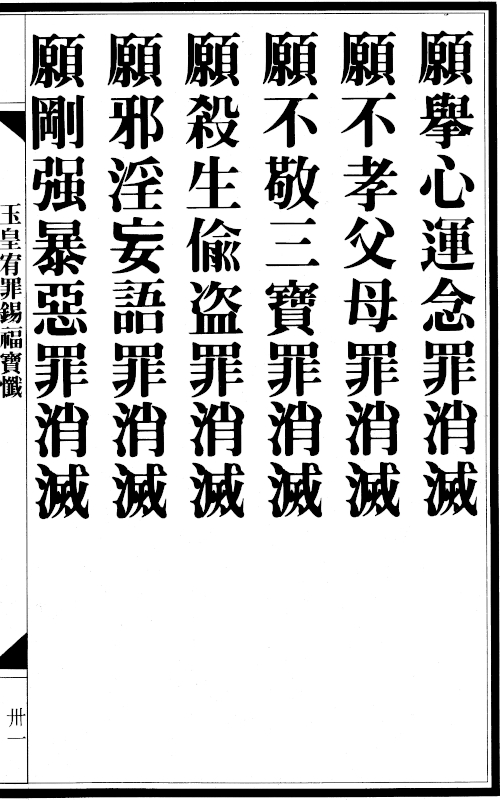 願擧心運念罪消滅
願不孝父母罪消滅
願不敬三寶罪消滅
願殺生偸盜罪消滅
願邪淫妄語罪消滅
願剛强暴惡罪消滅
玉皇宥罪錫福寶懺
卅一